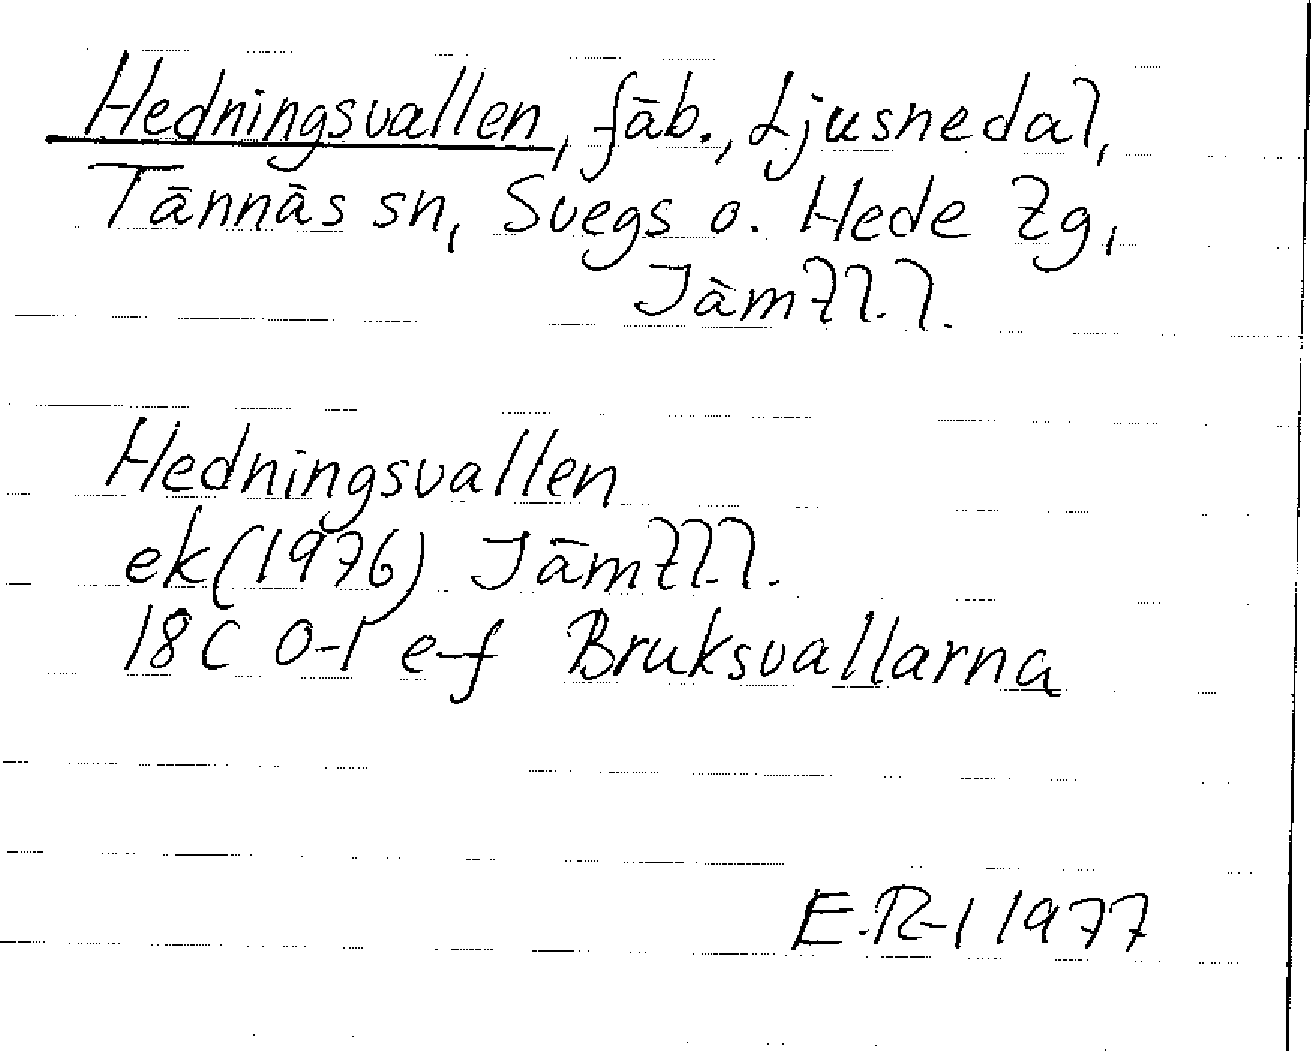 Hedningsvallen, fäb., Ljusnedal,
Tännäs sn, Svegs o. Hede tg,
Jämtl. l.
Hedningsvallen
ek (1976) Jämtl. l.
18C 0-1 e-f Bruksvallarna
E.R-l 1977